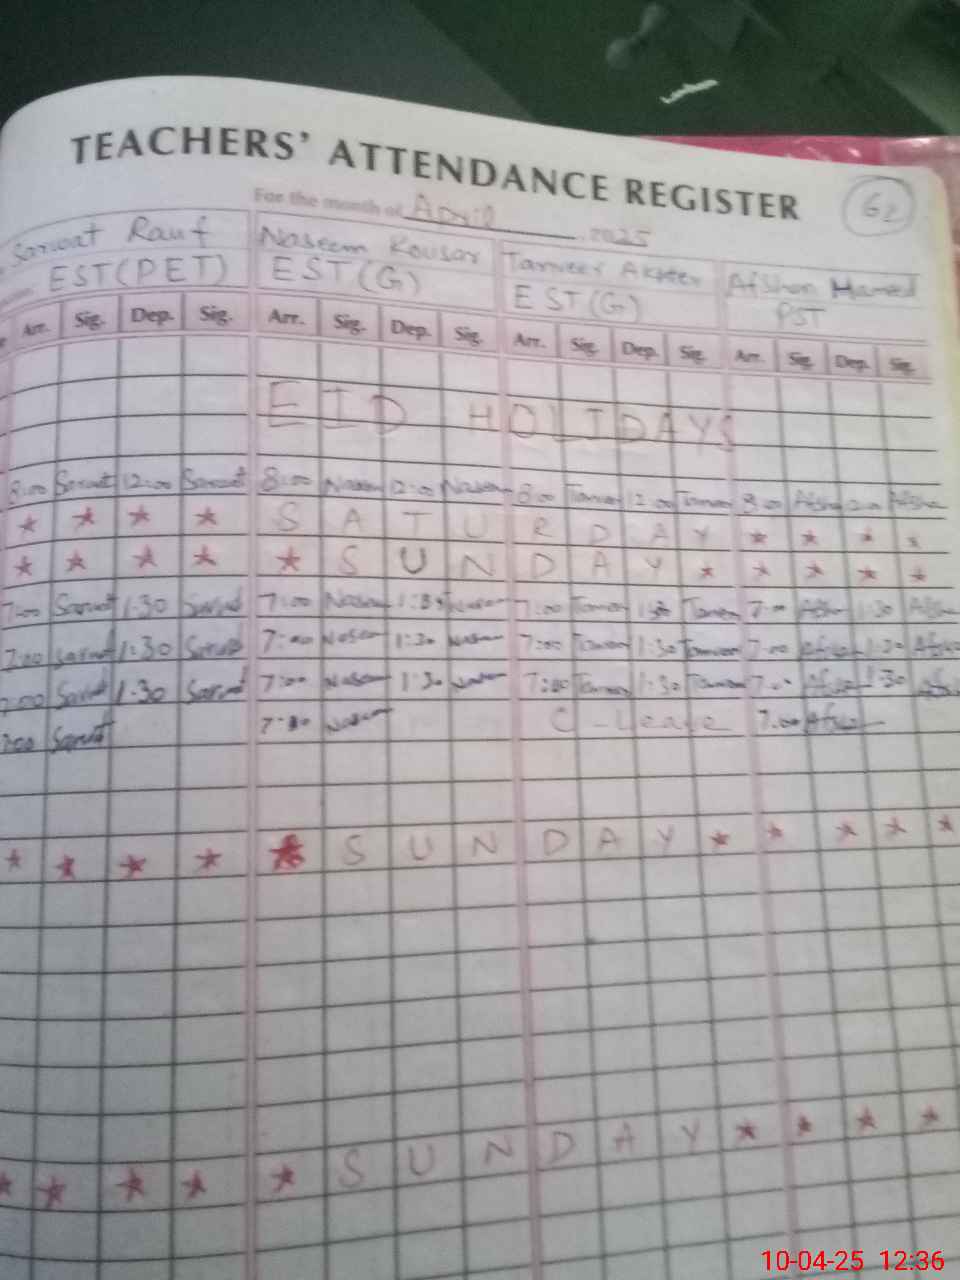 TEACHERS' ATTENDANCE REGISTER
62
For the month of April 2025
Sarwat Rauf Naseem Kousar Tanveer Akhter Afshan Hameed
EST(PET) EST(G) EST(G) PST
Arr. Sig. Dep. Sig. Arr. Sig. Dep. Sig. Arr. Sig. Dep. Sig. Arr. Sig. Dep. Sig.
EID HOLIDAYS
8:00 Sarwat 12:00 Sarwat 8:00 Naseem 12:00 Naseem 8:00 12:00 8:00
SATURDAY
SUNDAY
7:00 Sarwat 1:30 Sarwat 7:00 Naseem 1:30 Naseem 7:00 1:30 7:00 1:30
7:00 Sarwat 1:30 Sarwat 7:00 Naseem 1:30 Naseem 7:00 1:30 7:00 1:30
7:00 Sarwat 1:30 Sarwat 7:00 Naseem 1:30 Naseem 7:00 1:30 7:00 1:30
7:00 Sarwat 7:00 Naseem C-Leave 7:00
SUNDAY
SUNDAY
10-04-25 12:36